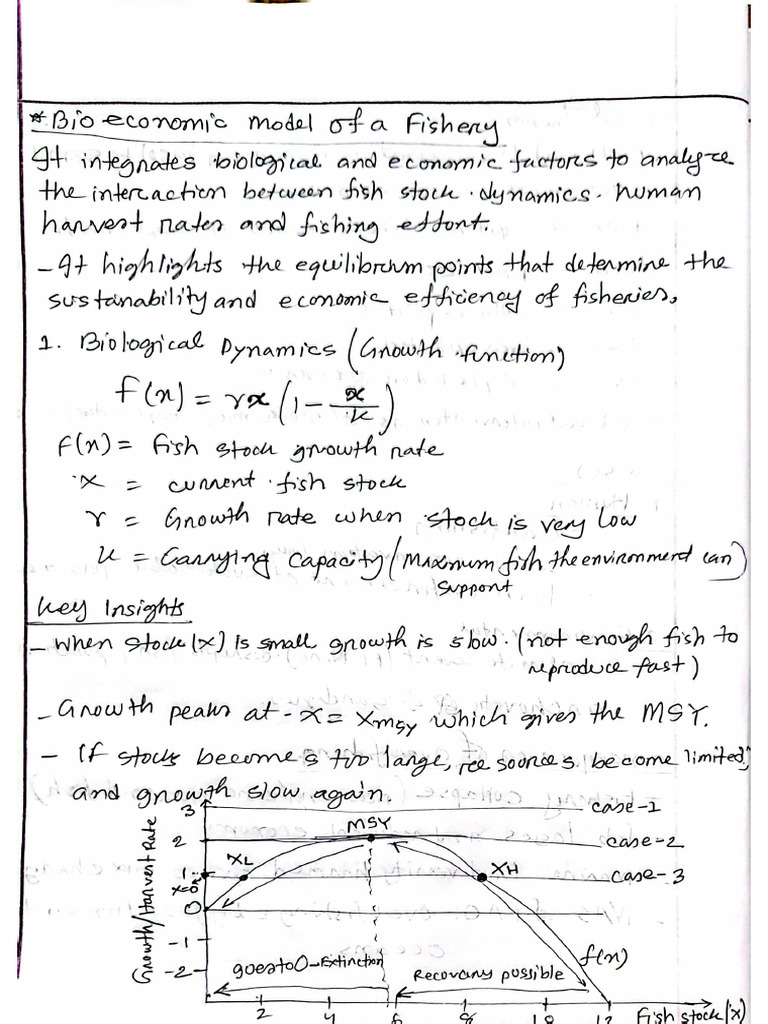 * Bio economic model of a Fishery
It integrates biological and economic factors to analyze
the interaction between fish stock dynamics. human
harvest rates and fishing effort.
- It highlights the equilibrium points that determine the
sustanability and economic efficiency of fisheries,
1. Biological Dynamics (Growth function)
f(x) = rx (1 - x/k)
f(x) = fish stock growth rate
x = current fish stock
r = Growth rate when stock is very low
k = Carrying capacity (Maximum fish the environment can
support)
Key Insights
- When stock (x) is small growth is slow. (not enough fish to
reproduce fast)
- Growth peaks at - x = xmsy which gives the MSY.
- If stocks become s too large, resources become limited,
and growth slow again.
3 case-1
MSY
2 case-2
XL XH
1 case-3
x=0
0
-1
-2
Growth/Harvest Rate
f(x)
goes to 0 - Extinction
Recovary possible
2 4 6 8 10 12 Fish stock (x)